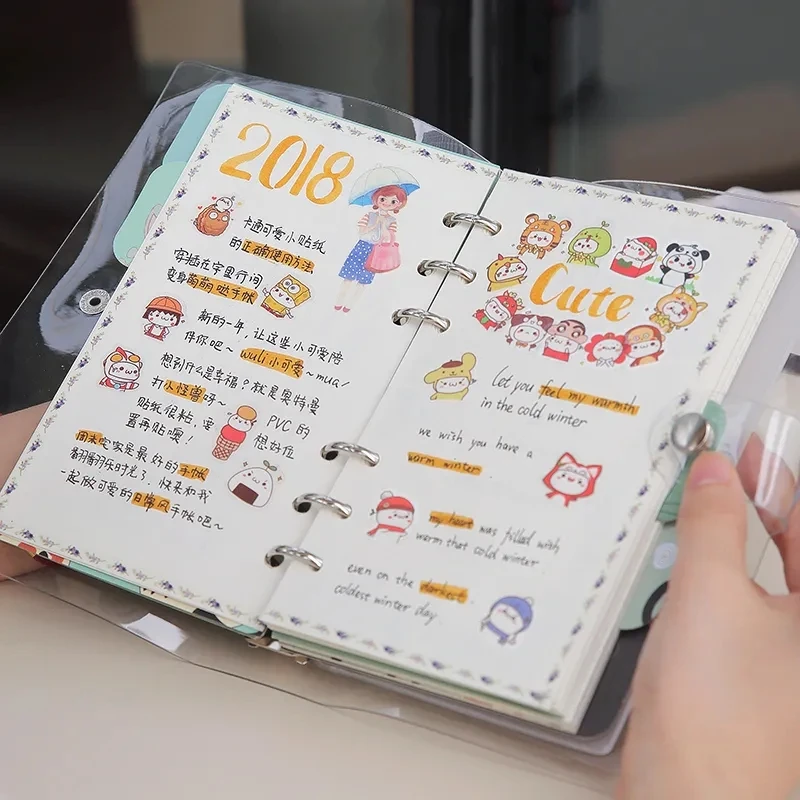 2018
卡通可爱小贴纸
的正确使用方法
穿插在字里行间
变身萌萌哒手帐
新的一年，让这些小可爱陪
伴你吧～wuli小可爱～mua！
想到什么是幸福？就是奥特曼
打小怪兽呀～
贴纸很粘，要
PVC的
想好位
置再贴噢！
周末宅家是最好的手帐
翻翻乐时光了，快来和我
一起做可爱的日常风手帐吧～
Cute
Let you feel my warmth
in the cold winter
we wish you have a
warm winter
my heart was filled with
warm that cold winter.
even on the darkest.
coldest winter day.